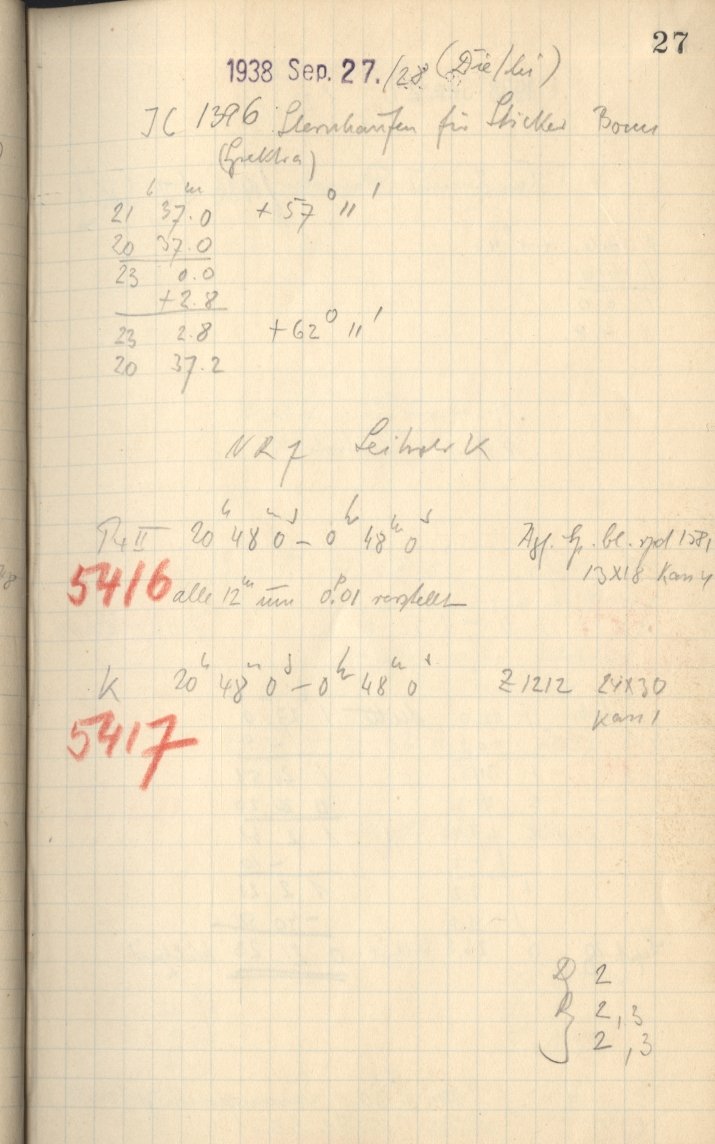 27
1938 Sep. 27./28 (Die/Mi)
JC 1396 Sternhaufen für Sticker Bonn
(Spektra)
h m
21 37.0 +57° 11'
20 37.0
23 0.0
+2.8
23 2.8 +62° 11'
20 37.2
NR 7 Leitrohr K
II 20h 48m 0s – 0h 48m 0s Agf. Sp. bl.
5416 13X18 Kass 4
alle 12m um 0.01 verstellt
K 20h 48m 0s – 0h 48m 0s Z1212 24X30
Kass 1
5417
D 2
R 2,3
2,3